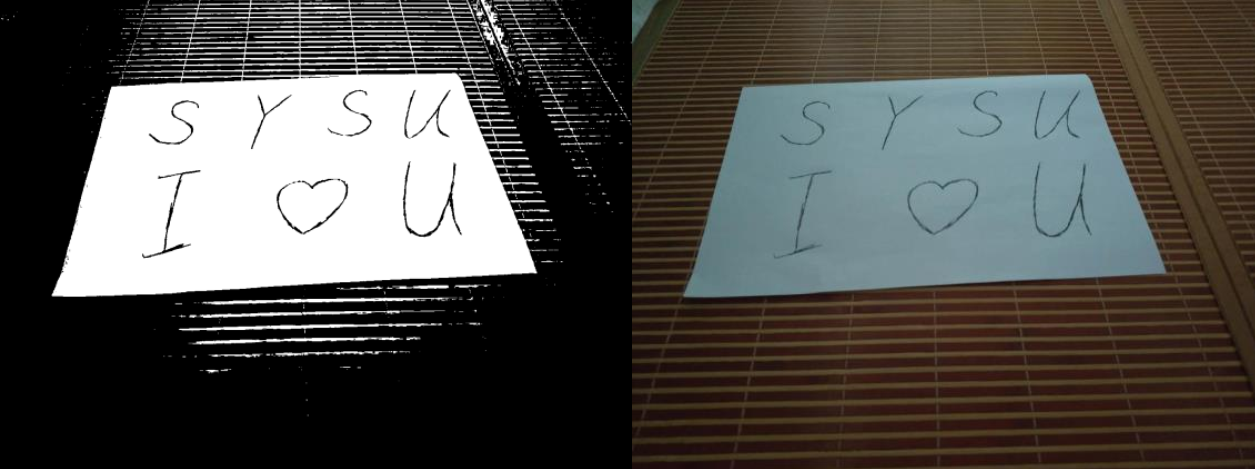 SYSU
I ♡ U
SYSU
I ♡ U